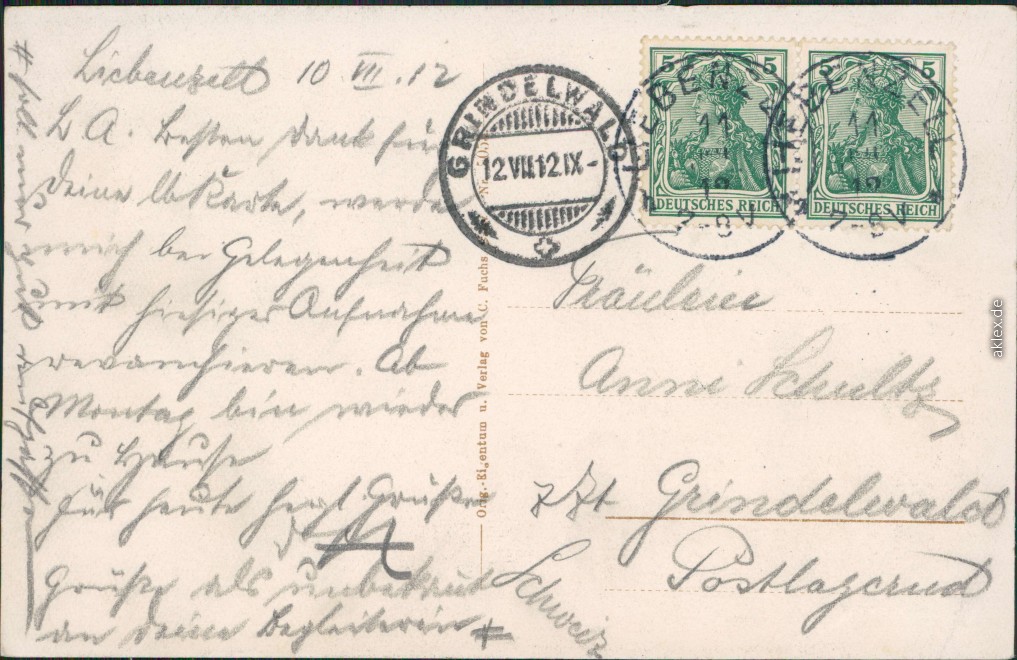 Liebenzell 10 VII.12
L A. Besten Dank für
Deine Abkarte, werde
mich bei Gelegenheit
mit hiesiger Aufnahme
revanchieren. Ab
Montag bin wieder
zu Hause
Für heute herzl Grüße
Dein A
Grüße als unbekannt
an Deine Begleiterin #
#
GRINDELWALD
12.VII.12.IX-
LIEBENZELL
11
12
7-8V
LIEBENZELL
11
12
7-8V
5 5
DEUTSCHES REICH
5 5
DEUTSCHES REICH
Orig.-Eigentum u. Verlag von C. Fuchs
Fräulein
Anni Schultz
z Zt Grindelwald
Postlagernd
Schweiz
aklex.de